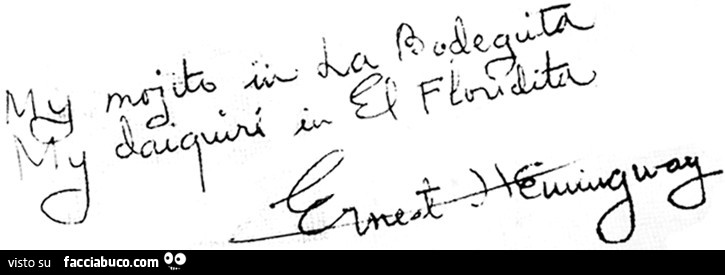 My mojito in La Bodeguita
My daiquiri in El Floridita
Ernest Hemingway
visto su facciabuco.com